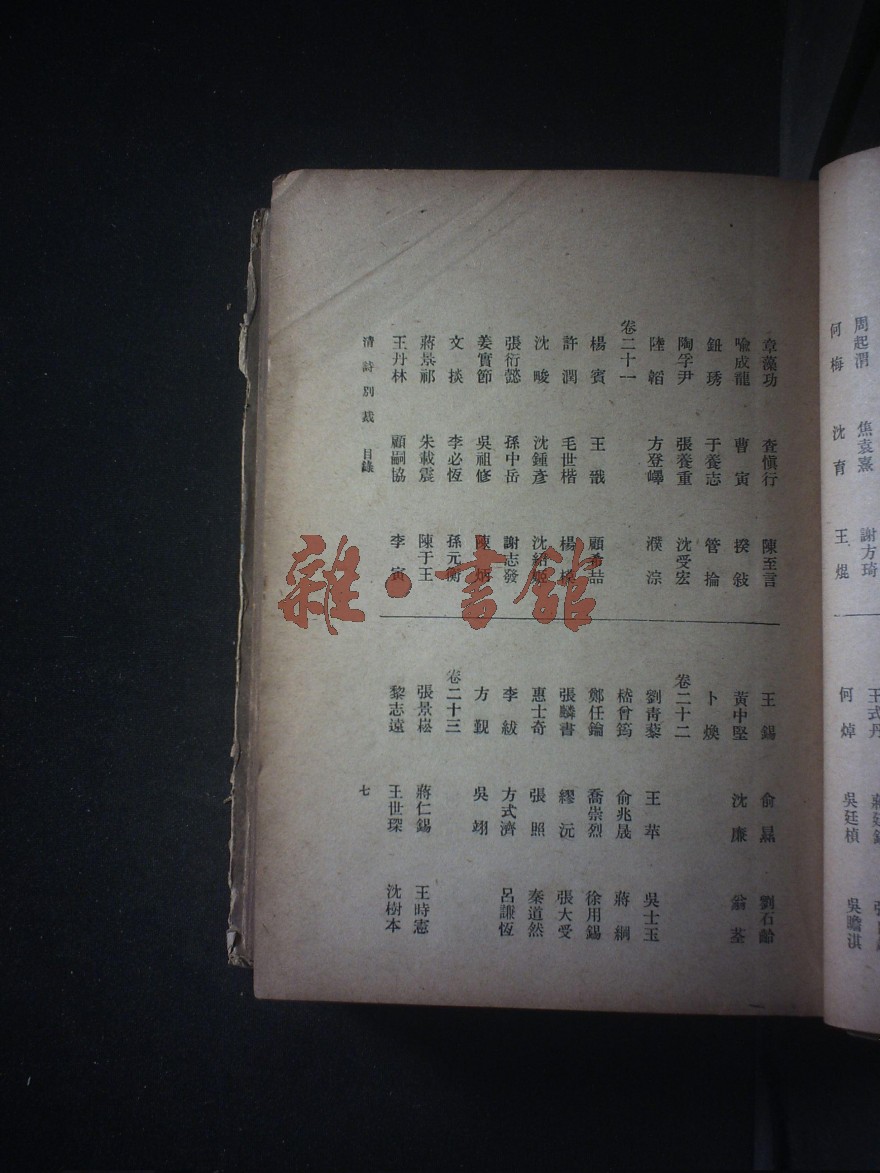 周起渭　焦袁熹　謝方琦
何　梅　沈　育　王　焜
王式丹
何　焯　吳廷楨　吳瞻淇
章藻功　查愼行　陳至言
喩成龍　曹　寅　揆　敍
鈕　琇　于養志　管　掄
陶孚尹　張養重　沈受宏
陸　韜　方登嶧　濮　淙
卷二十一
楊　賓　王　戩　顧希喆
許　潤　毛世楷　楊
沈　畯　沈鍾彥　沈紹姬
張衍懿　孫中岳　謝志發
姜實節　吳祖修　陳　炳
文　掞　李必恆　孫元衡
蔣景祁　朱載震　陳于王
王丹林　顧嗣協　李　寅
清詩別裁　目錄
王　錫　俞　㬎　劉石齡
黃中堅　沈　廉　翁　荃
卜　煥
卷二十二
劉靑藜　王　苹　吳士玉
嵇曾筠　俞兆晟　蔣　綱
鄭任鑰　喬崇烈　徐用錫
張麟書　繆　沅　張大受
惠士奇　張　照　秦道然
李　紱　方式濟　呂謙恆
方　覲　吳　翊
卷二十三
張景崧　蔣仁錫　王時憲
黎志遠　王世琛　沈樹本
七
雜·書館